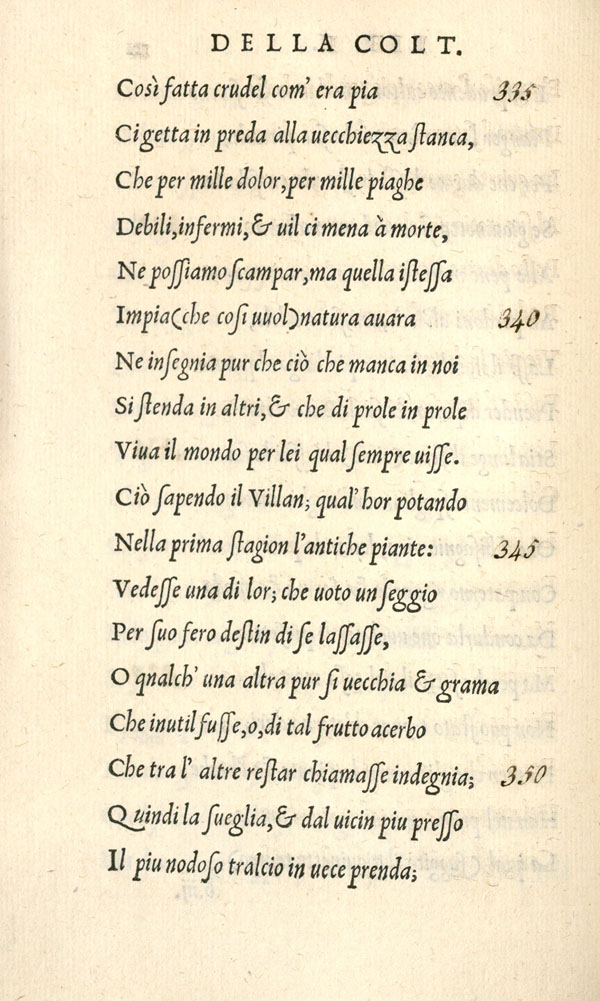 DELLA COLT.
Così fatta crudel com' era pia 335
Ci getta in preda alla uecchiezza stanca,
Che per mille dolor, per mille piaghe
Debili, infermi, & uil ci mena à morte,
Ne possiamo scampar, ma quella istessa
Impia (che cosi uuol) natura auara 340
Ne insegnia pur che ciò che manca in noi
Si stenda in altri, & che di prole in prole
Viua il mondo per lei qual sempre uisse.
Ciò sapendo il Villan; qual' hor potando
Nella prima stagion l'antiche piante: 345
Vedesse una di lor; che uoto un seggio
Per suo fero destin di se lassasse,
O qnalch' una altra pur si uecchia & grama
Che inutil fusse, o, di tal frutto acerbo
Che tra l' altre restar chiamasse indegnia; 350
Quindi la sueglia, & dal uicin piu presso
Il piu nodoso tralcio in uece prenda;